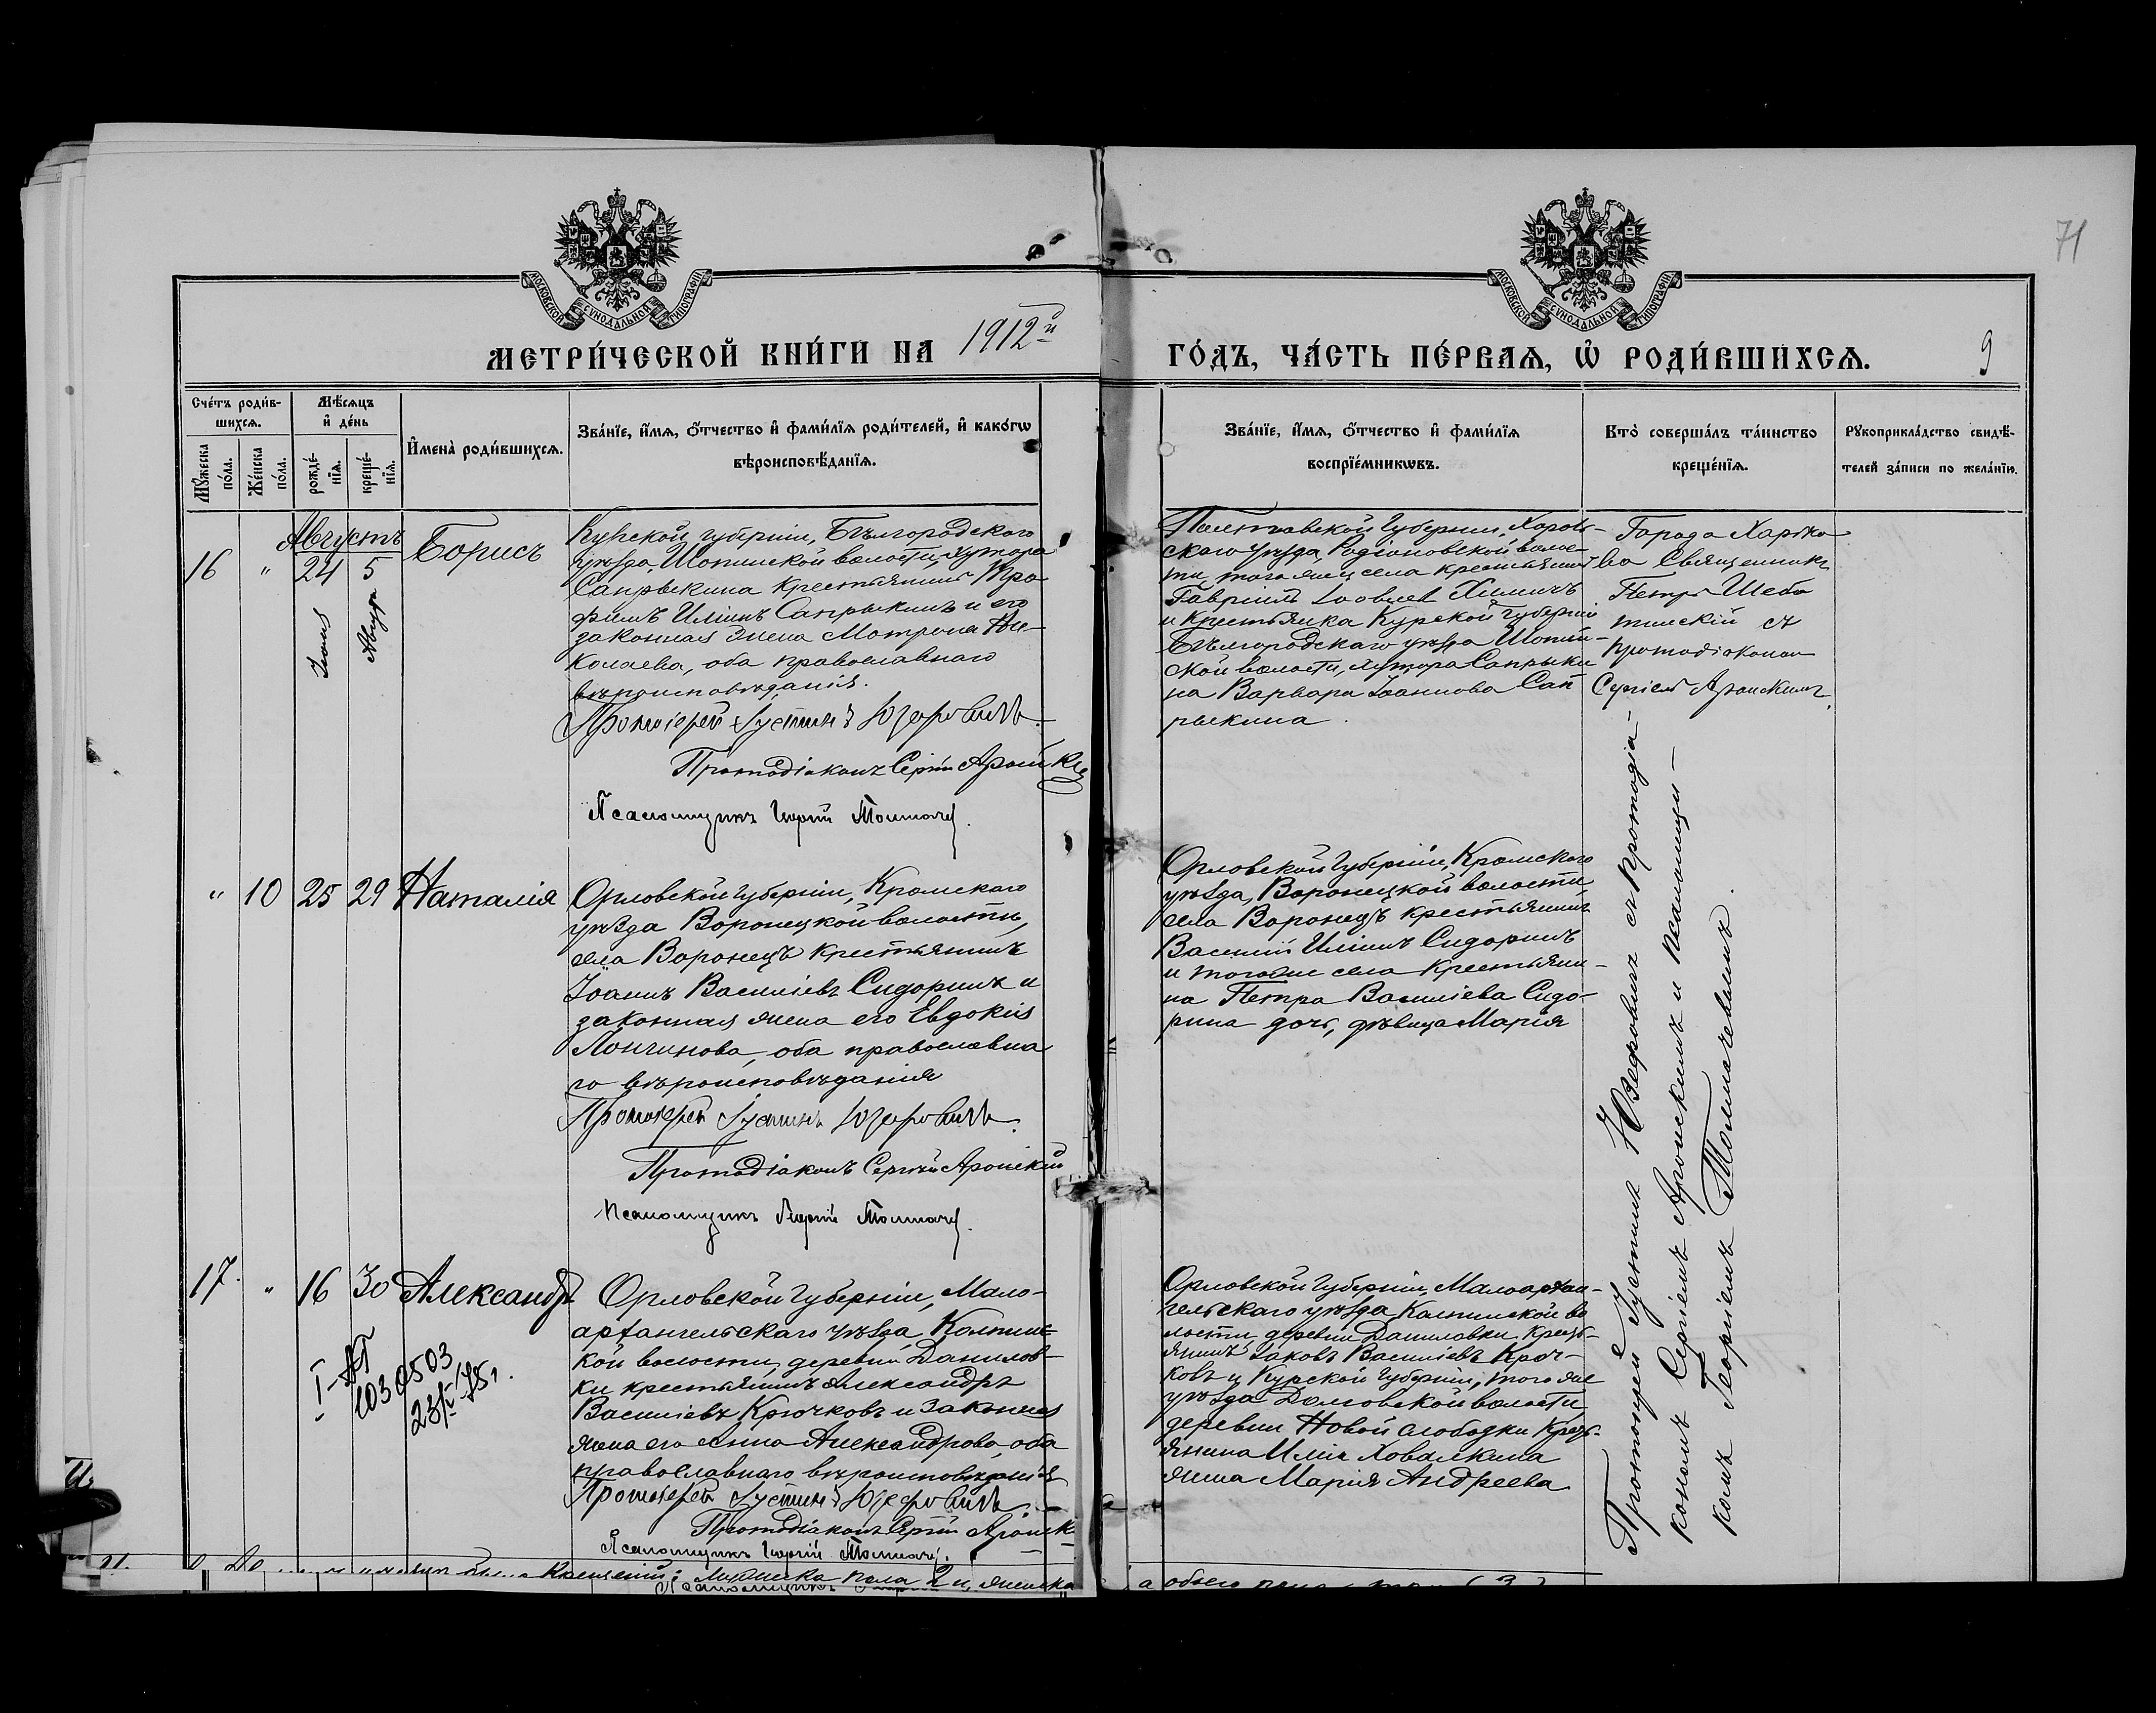 71
МОСКОВСКОЙ СѴНОДАЛЬНОЙ ТИПОГРАФІИ
МОСКОВСКОЙ СѴНОДАЛЬНОЙ ТИПОГРАФІИ
МЕТРИ́ЧЕСКОЙ КНИ́ГИ НА 1912й ГО́ДЪ, ЧА́СТЬ ПЕ́РВАѦ, Ѡ҆ РОДИ́ВШИХСѦ. 9
Сче́тъ роди́в-
шихсѧ.
Мꙋ́жеска по́ла.
Же́нска по́ла.
Мѣ́сѧцъ
и҆ де́нь
рожде́-
нїѧ.
креще́-
нїѧ.
И҆мена̀ роди́вшихсѧ.
Зва́нїе, и҆́мѧ, ѻ҆́тчество и҆ фами́лїѧ роди́телей, и҆ како́гѡ
вѣроисповѣ́данїѧ.
Зва́нїе, и҆́мѧ, ѻ҆́тчество и҆ фами́лїѧ
воспрїе́мникѡвъ.
Кто̀ соверша́лъ та́инство
креще́нїѧ.
Рꙋкоприкла́дство свидѣ́-
телей за́писи по жела́нїю.
Августъ
16 " 24 5 Борисъ
Іюля
Август
Курской губерніи, Бѣлгородского
уѣзда, Шопинской волости, хутора
Сапрыкина крестьянинъ Тро
фимъ Иліинъ Сапрыкинъ и его
законная жена Матрона Ни-
колаева, оба православнаго
вѣроисповѣданія.
Протоіерей Іустинъ Юзефовичъ.
Протодіаконъ Сергій Аронскій
Псаломщикъ Георгій Толмачев.
Полтавской Губерніи, Хороль-
скаго уѣзда, Родіоновской волос-
ти, того же села крестьянинъ
Гавріилъ Іаковлев Химичъ
и крестьянка Курской губерніи
Бѣлгородскаго уѣзда Шопин-
ской волости, хутора Сапрыки
на Варвара Іоаннова Сап
рыкина.
Города Харько
ва Священникъ
Петръ Шебо
тинскій съ
протодіаконом
Сергіем Аронскимъ.
" 10 25 29 Наталія
Орловской Губерніи, Кромскаго
уѣзда Воронецкой волости,
села Воронецъ крестьянинъ
Іоаннъ Василіевъ Сидоринъ и
законная жена его Евдокія
Лончинова, оба православна
го вѣроисповѣданія
Протоіерей Іустинъ Юзефовичъ.
Протодіаконъ Сергій Аронскій
Псаломщикъ Георгій Толмачев.
Орловской Губерніи, Кромскаго
уѣзда, Воронецкой волости
села Воронецъ крестьянинъ
Василій Иліинъ Сидоринъ
и тогоже села крестьяни-
на Петра Василіева Сидо-
рина дочь, дѣвица Марія
17. " 16 30 Александръ
І-АГ
23/ 75г.
Орловской Губерніи, Мало-
архангельскаго уѣзда, Колпинс-
кой волости, деревни Данилов-
ки крестьянинъ Александръ
Василіевъ Крючковъ и законная
жена его Анна Александрова, оба
православнаго вѣроисповѣданія
Протоіерей Іустинъ Юзефовичъ.
Протодіаконъ Сергій Аронск
Псаломщикъ Георгій Толмачев.
Орловской Губерніи, Малоархан-
гельскаго уѣзда Колпинской во
лости, деревни Даниловки, Кресть-
янинъ Іаковъ Василіевъ Крюч-
ковъ и Курской Губерніи, того же
уѣзда Долговской волости,
деревни Новой слободки Кресть-
янина Иліи Ховалкина
жена Марія Андреева
Протоіерей Іустинъ Юзефовичъ съ протодіа-
кономъ Сергіемъ Аронскимъ и псаломщи-
комъ Георгіемъ Толмачевымъ.
крещеній: Мужеска пола 2 и женска
а обоего пола (3)